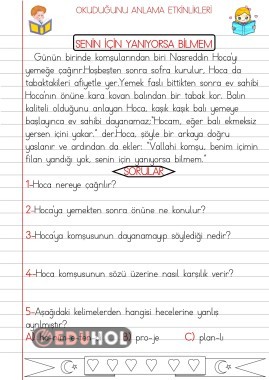 OKUDUĞUNU ANLAMA ETKİNLİKLERİ
SENİN İÇİN YANIYORSA BİLMEM
Günün birinde komşularından biri Nasreddin Hoca'yı
yemeğe çağırır.Hoşbeşten sonra sofra kurulur, Hoca da
tabaktakileri afiyetle yer.Yemek faslı bittikten sonra ev sahibi
Hoca'nın önüne kara kovan balından bir tabak kor. Balın
kaliteli olduğunu anlayan Hoca, kaşık kaşık balı yemeye
başlayınca ev sahibi dayanamaz:"Hocam, eğer balı ekmeksiz
yersen içini yakar." der.Hoca, şöyle bir arkaya doğru
yaslanır ve ardından da ekler: "Vallahi komşu, benim içimin
filan yandığı yok, senin için yanıyorsa bilmem."
SORULAR
1-Hoca nereye çağrılır?
2-Hoca'ya yemekten sonra önüne ne konulur?
3-Hoca'ya komşusunun dayanamayıp söylediği nedir?
4-Hoca komşusunun sözü üzerine nasıl karşılık verir?
5-Aşağıdaki kelimelerden hangisi hecelerine yanlış
ayrılmıştır?
A) pro-je C) plan-lı
EDUHOL